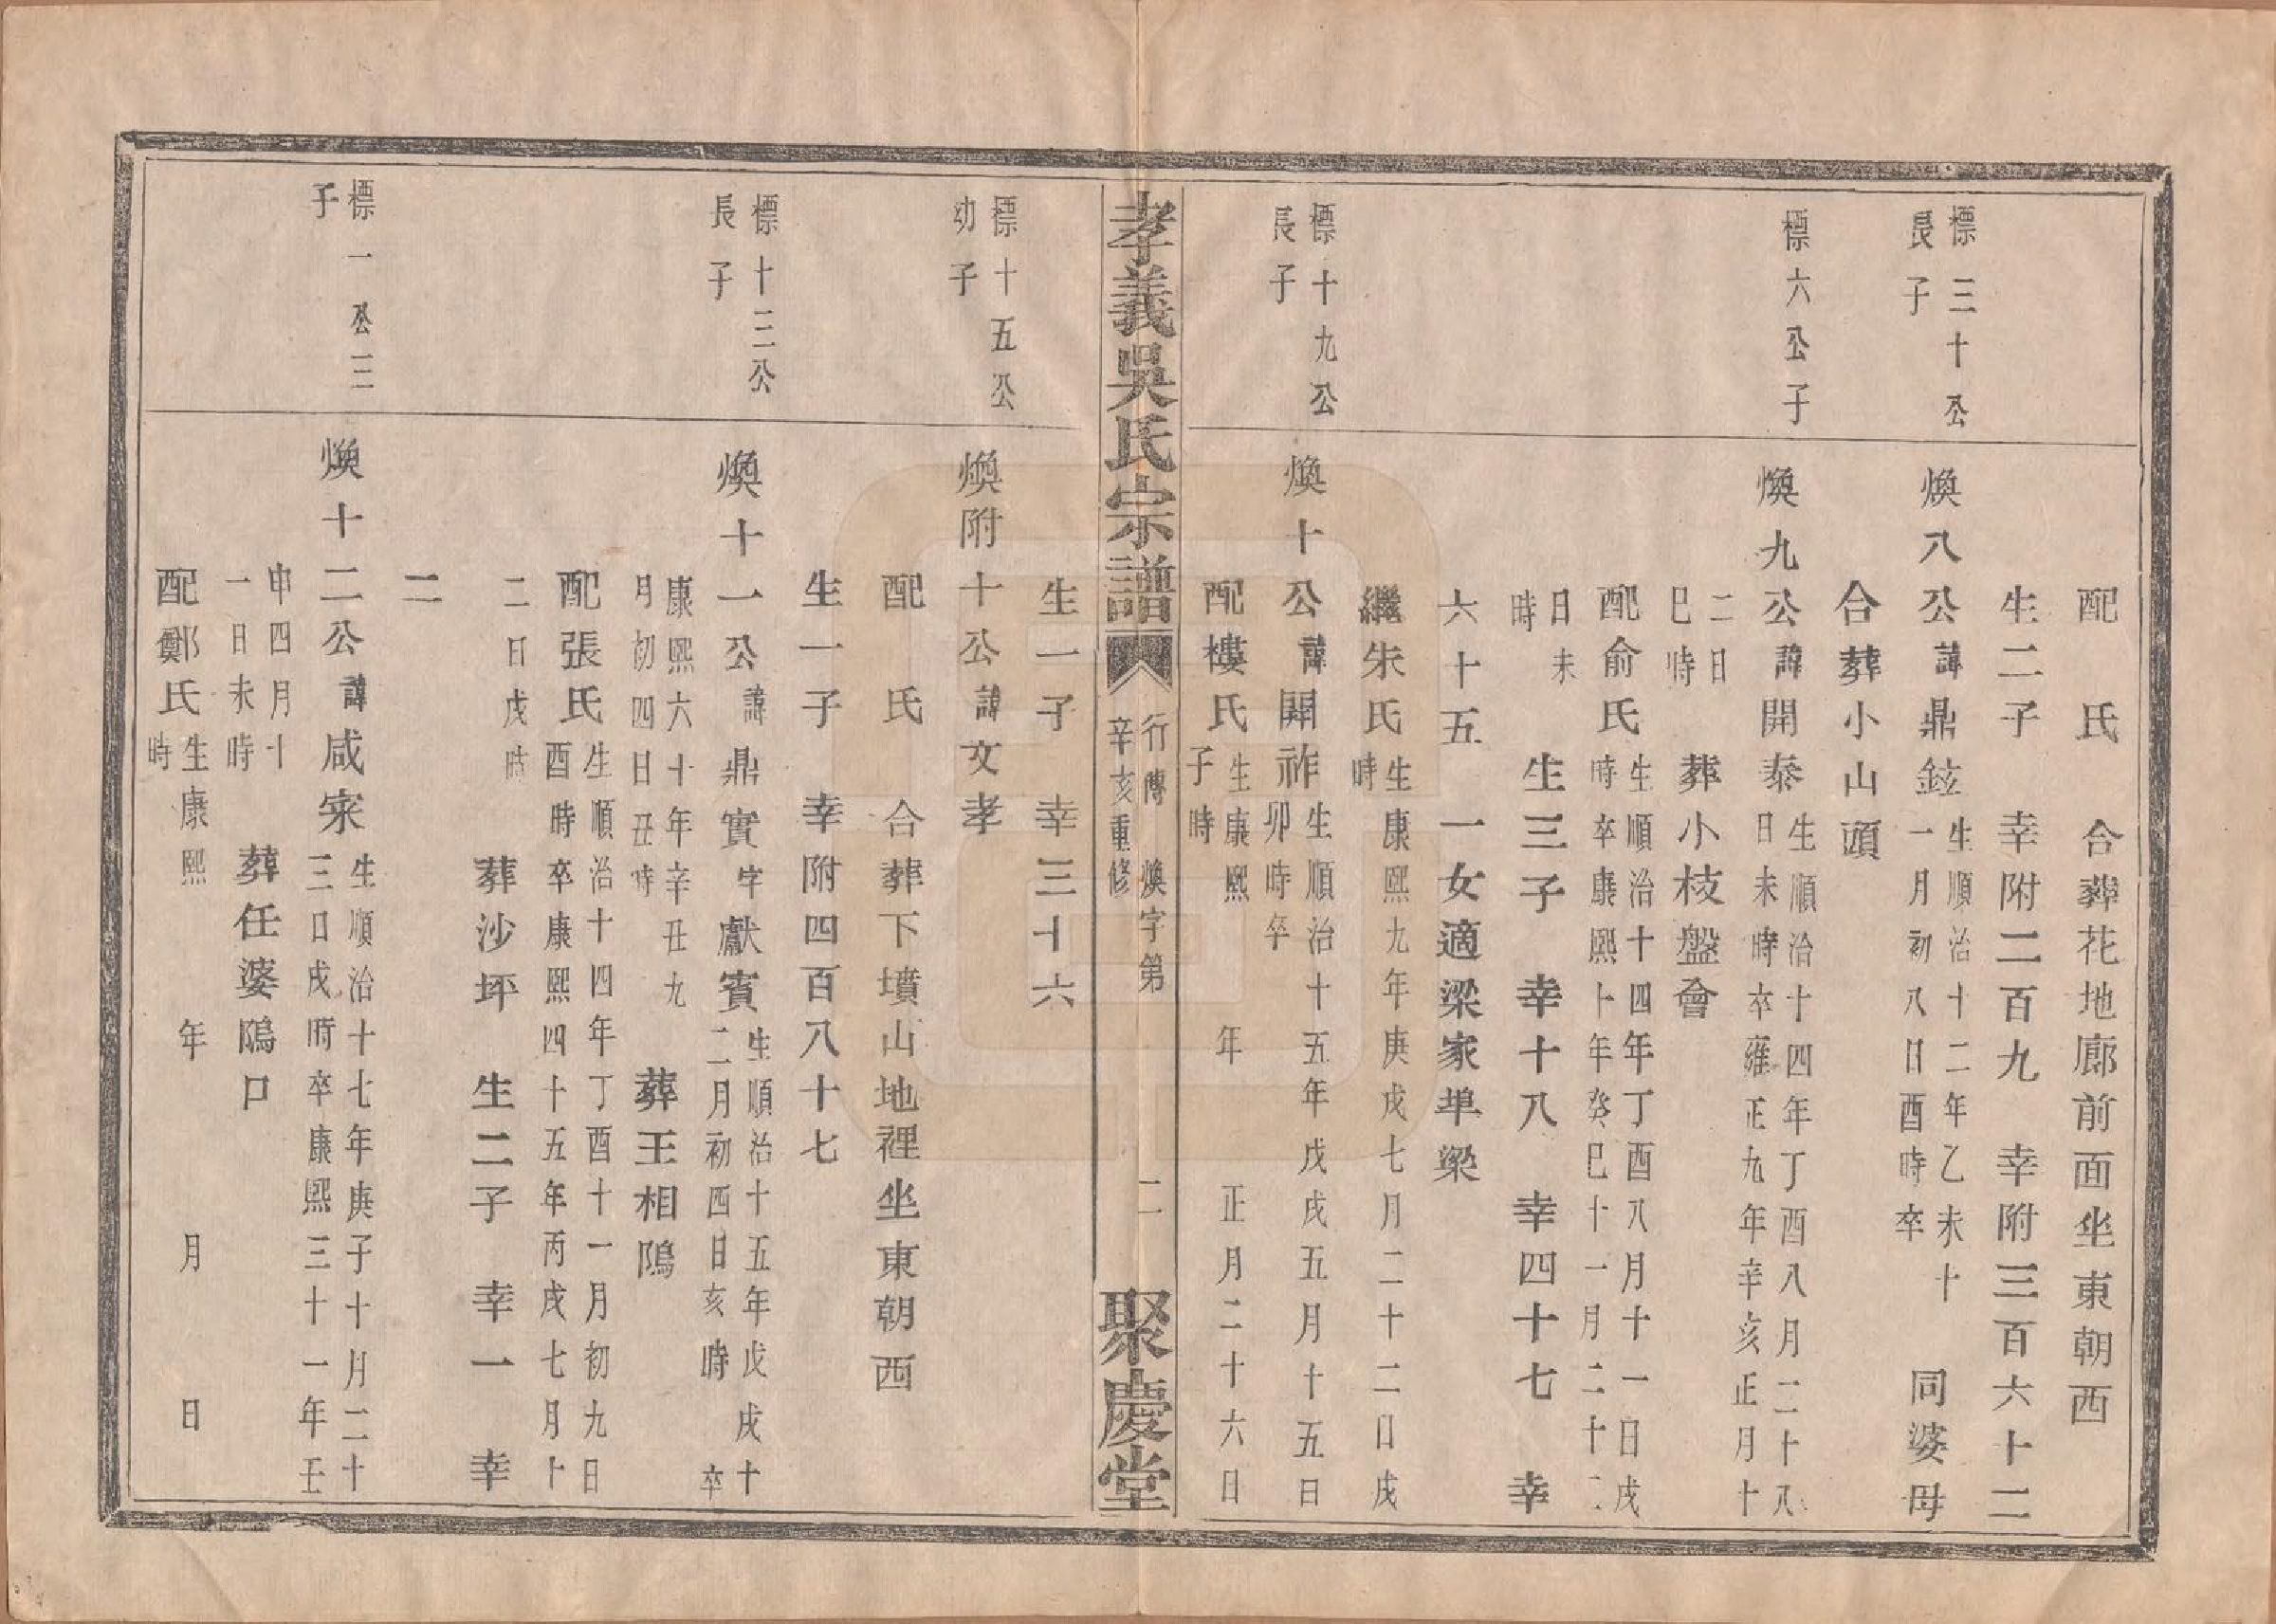 配　氏　合葬花地廊前面坐東朝西
生二子　幸附二百九　幸附三百六十二
標三十公
長子
煥八公諱鼎鉉
生順治十二年乙未十
一月初八日酉時卒
同婆母
合葬小山頭
標六公子
煥九公諱開泰
生順治十四年丁酉八月二十八
日未時卒雍正九年辛亥正月十
二日
巳時
葬小枝盤會
配俞氏
生順治十四年丁酉八月十一日戌
時卒康熙卜年癸巳十一月二十二
日未
時
生三子　幸十八　幸四十七　幸
六十五　一女適梁家埠梁
繼朱氏
生康熙九年庚戌七月二十二日戌
時
標十九公
長子
煥十公諱開祚
生順治十五年戊戌五月十五日
卯時卒
配樓氏
生康熙　年　正月二十六日
子時
孝義吳氏宗譜
行傳　煥字第　二
辛亥重修
聚慶堂
生一子　幸三十六
標十五公
幼子
煥附十公諱文孝
配　氏　合葬下墳山地裡坐東朝西
生一子　幸附四百八十七
標十三公
長子
煥十一公諱鼎實字獻賓
生順治十五年戊戌十
二月初四日亥時　卒
康熙六十年辛丑九
月初四日丑時
葬王相隝
配張氏
生順治十四年丁酉十一月初九日
酉時卒康熙四十五年丙戌七月卜
二日戌時
葬沙坪　生二子　幸一　幸
二
標一公三
子
煥十二公諱咸宷
生順治十七年庚子十月二十
三日戌時卒康熙三十一年壬
申四月十
一日未時
葬任婆隝口
配鄭氏
生康熙　年　月　日
時